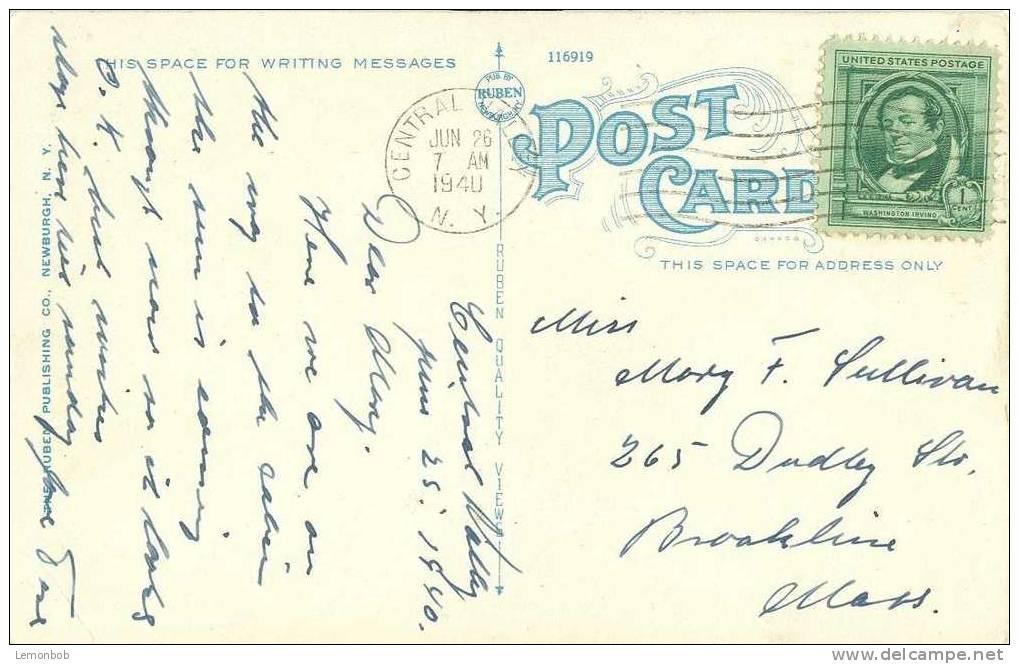 THIS SPACE FOR WRITING MESSAGES
116919
PUB. BY
RUBEN
NEWBURGH, N.Y.
POST
CARD
CENTRAL VALLEY
JUN 26
7 AM
1940
N. Y.
UNITED STATES POSTAGE
1 CENT
WASHINGTON IRVING
THIS SPACE FOR ADDRESS ONLY
RUBEN QUALITY VIEWS
THE RUBEN PUBLISHING CO., NEWBURGH, N. Y.
Central Valley
June 25, 1940.
Dear Mary,
Here we are on
the way to the cabin
the sun is coming
through now so it looks
O.K.
here Sunday Love
Miss
Mary F. Sullivan
265 Dudley Str.
Brookline
Mass.
Lemonbob
delcampe.net